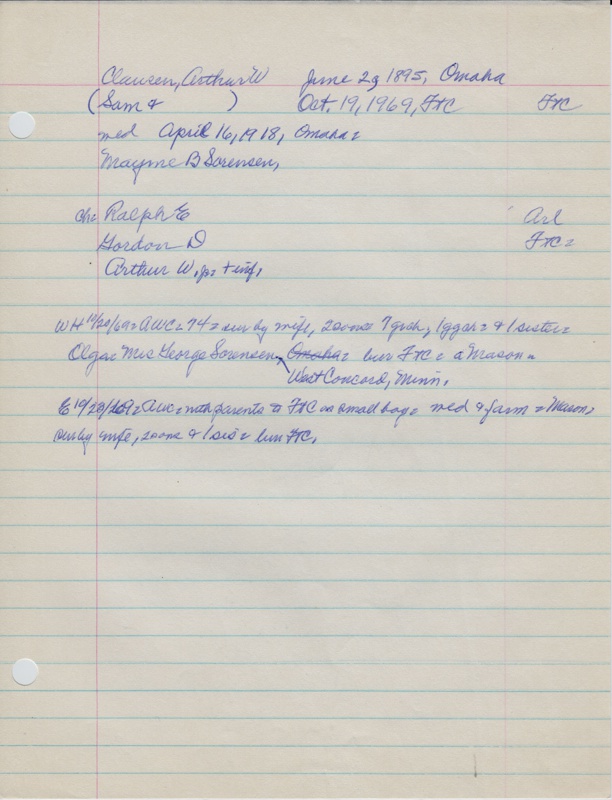 Clausen, Arthur W June 29 1895, Omaha
(Sam & ) Oct. 19, 1969, FtC FtC
med April 16, 1918, Omaha =
Mayme B Sorensen,
ch: Ralph E Arl
Gordon D FtC =
Arthur W, jr = + inf.
WH 10/20/69 = AWC = 74 = sur by wife, 2 sons = 7 gch, 1 ggch = & 1 sister =
Olga = Mrs George Sorensen, Omaha = bur FtC = a Mason =
West Concord, Minn.
E 10/28/69 = AWC = with parents to FtC as small boy = med & farm = Mason,
sur by wife, 2 sons & 1 sis = bur FtC.